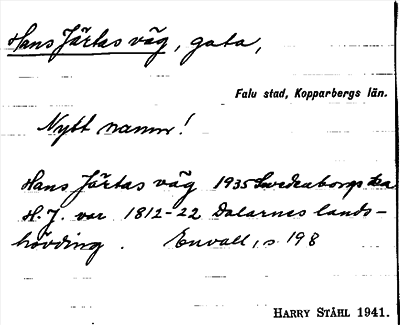 Hans Järtas väg, gata,
Falu stad, Kopparbergs län.
Nytt namn!
Hans Järtas väg 1935 Swedenborgs
H. J. var 1812-22 Dalarnes lands-
hövding. Envall, s. 198
HARRY STÅHL 1941.